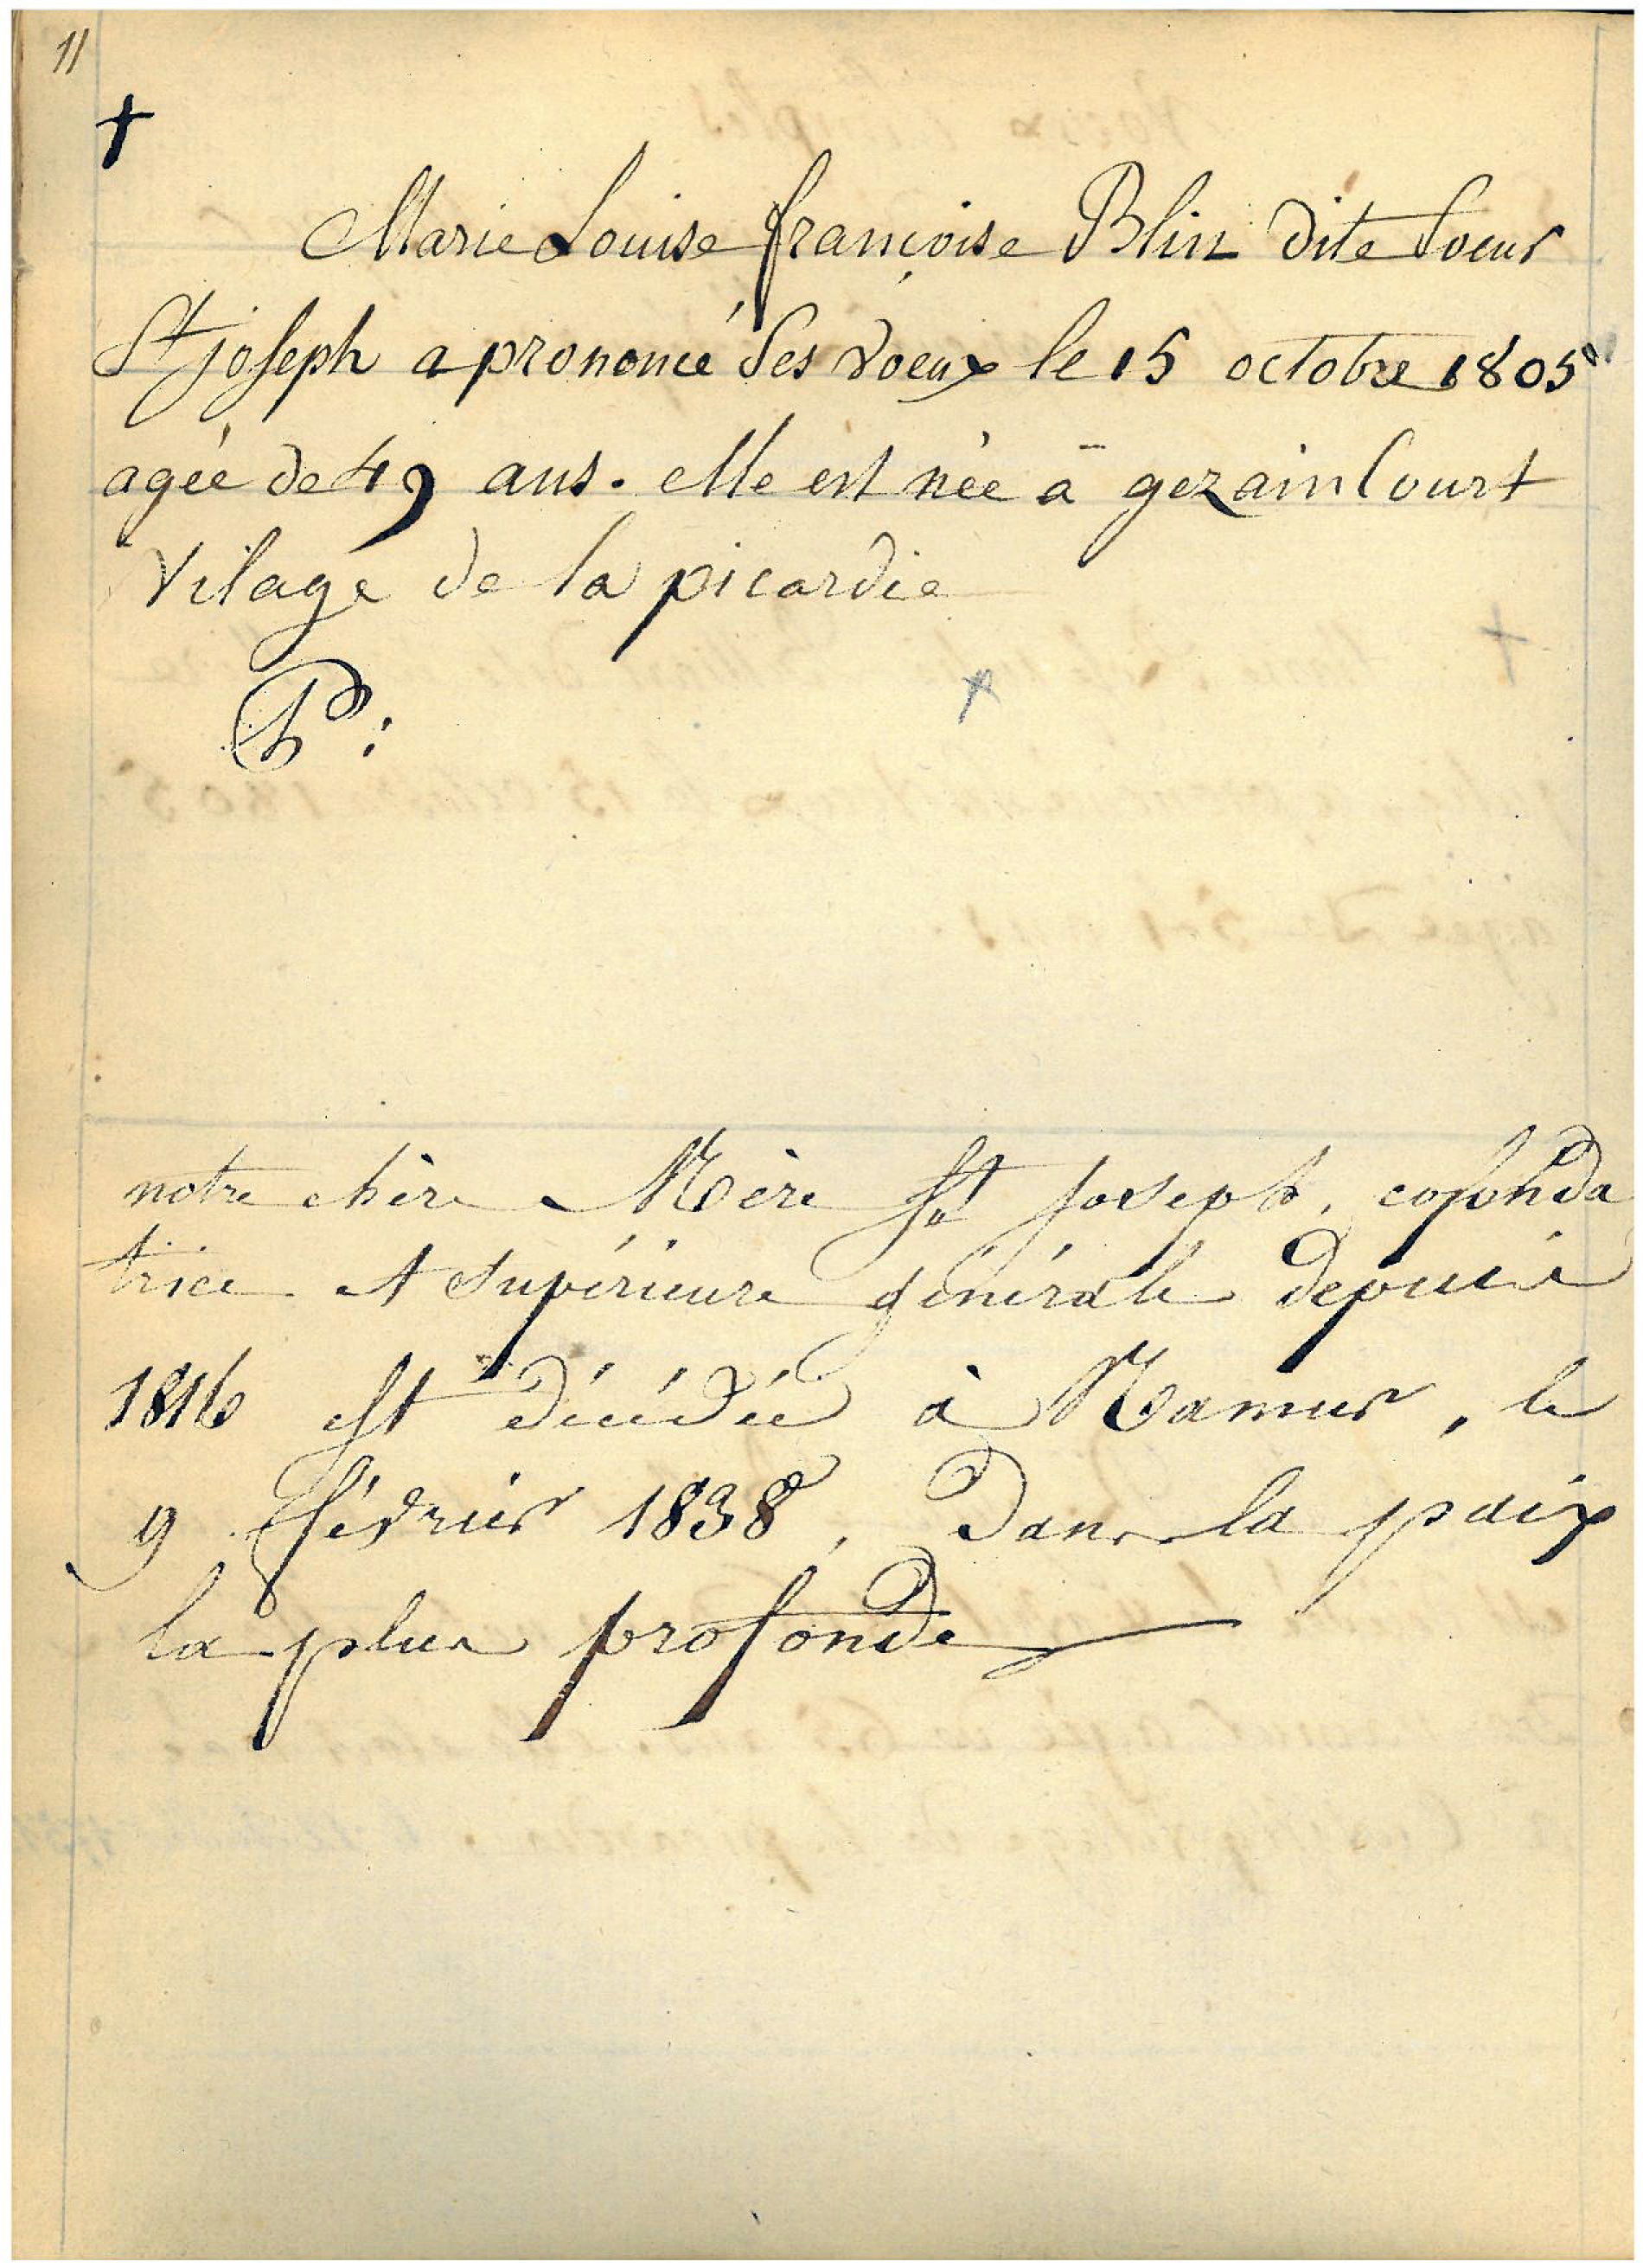 11
†
Marie Louise françoise Blin dite Soeur
St joseph a prononcé ses voeux le 15 octobre 1805
agée de 49 ans. elle est née à gezaincourt
vilage de la picardie
notre chère Mère St Joseph, cofonda
trice et supérieure générale depuis
1816 est décédée à Namur, le
9 février 1838, Dans la paix
la plus profonde